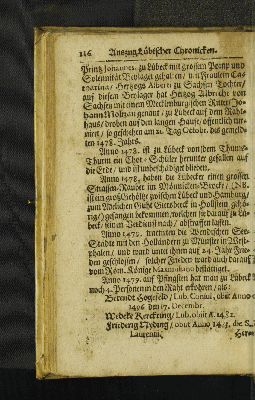 116 Auszug Lübischer Chronicken.
Printz Johannes, zu Lübeck mit grossem Pomp und
Solennität Beylager gehalten / mit Fräulein Ca-
tharina / Hertzogs Alberti zu Sachsen Tochter /
auf diesem Beylager hat Hertzog Albrecht von
Sachsen mit einem Mecklenburgischen Ritter Jo-
hann Moltzan genant / zu Lübeck auf dem Raht-
hause / droben auf den langen Hause offentlich tur-
niret / so geschehen am 21. Tag Octobr. des gemeld-
ten 1478. Jahrs.
Anno 1478. ist zu Lübeck von dem Thums-
Thurm ein Chor-Schüler herunter gefallen auf
die Erde / und ist unbeschädiget blieben.
Anno 1478. haben die Lübecker einen grossen
Strassen-Rauber im Mönnicken-Brocke / (NB.
ist ein groß Gehöltze zwischen Lübeck und Hamburg /
zum Adelichen Guht in Hollstein gehö-
rig) gefangen bekommen / welchen sie da auf zu Lü-
beck / seinem Verdienst nach / abstraffen lassen.
Anno 1479. tractirten die Wendischen See-
Städte mit den Holländern zu Münster in West-
phalen / und ward unter ihnen auf 24. Jahr Frie-
den geschlossen / solcher Frieden ward auch darauf
vom Röm. Könige Maximiliano bestättiget.
Anno 1479. auf Pfingsten hat man zu Lübeck
noch 4. Personen in den Raht erkohren / als:
Berendt / Lub. Consul, obiit Anno
1496 den 17. Decembr.
Wedeke Kerckring / Lub. obiit A. 1482.
Friederig / obiit Anno
Laurentii.